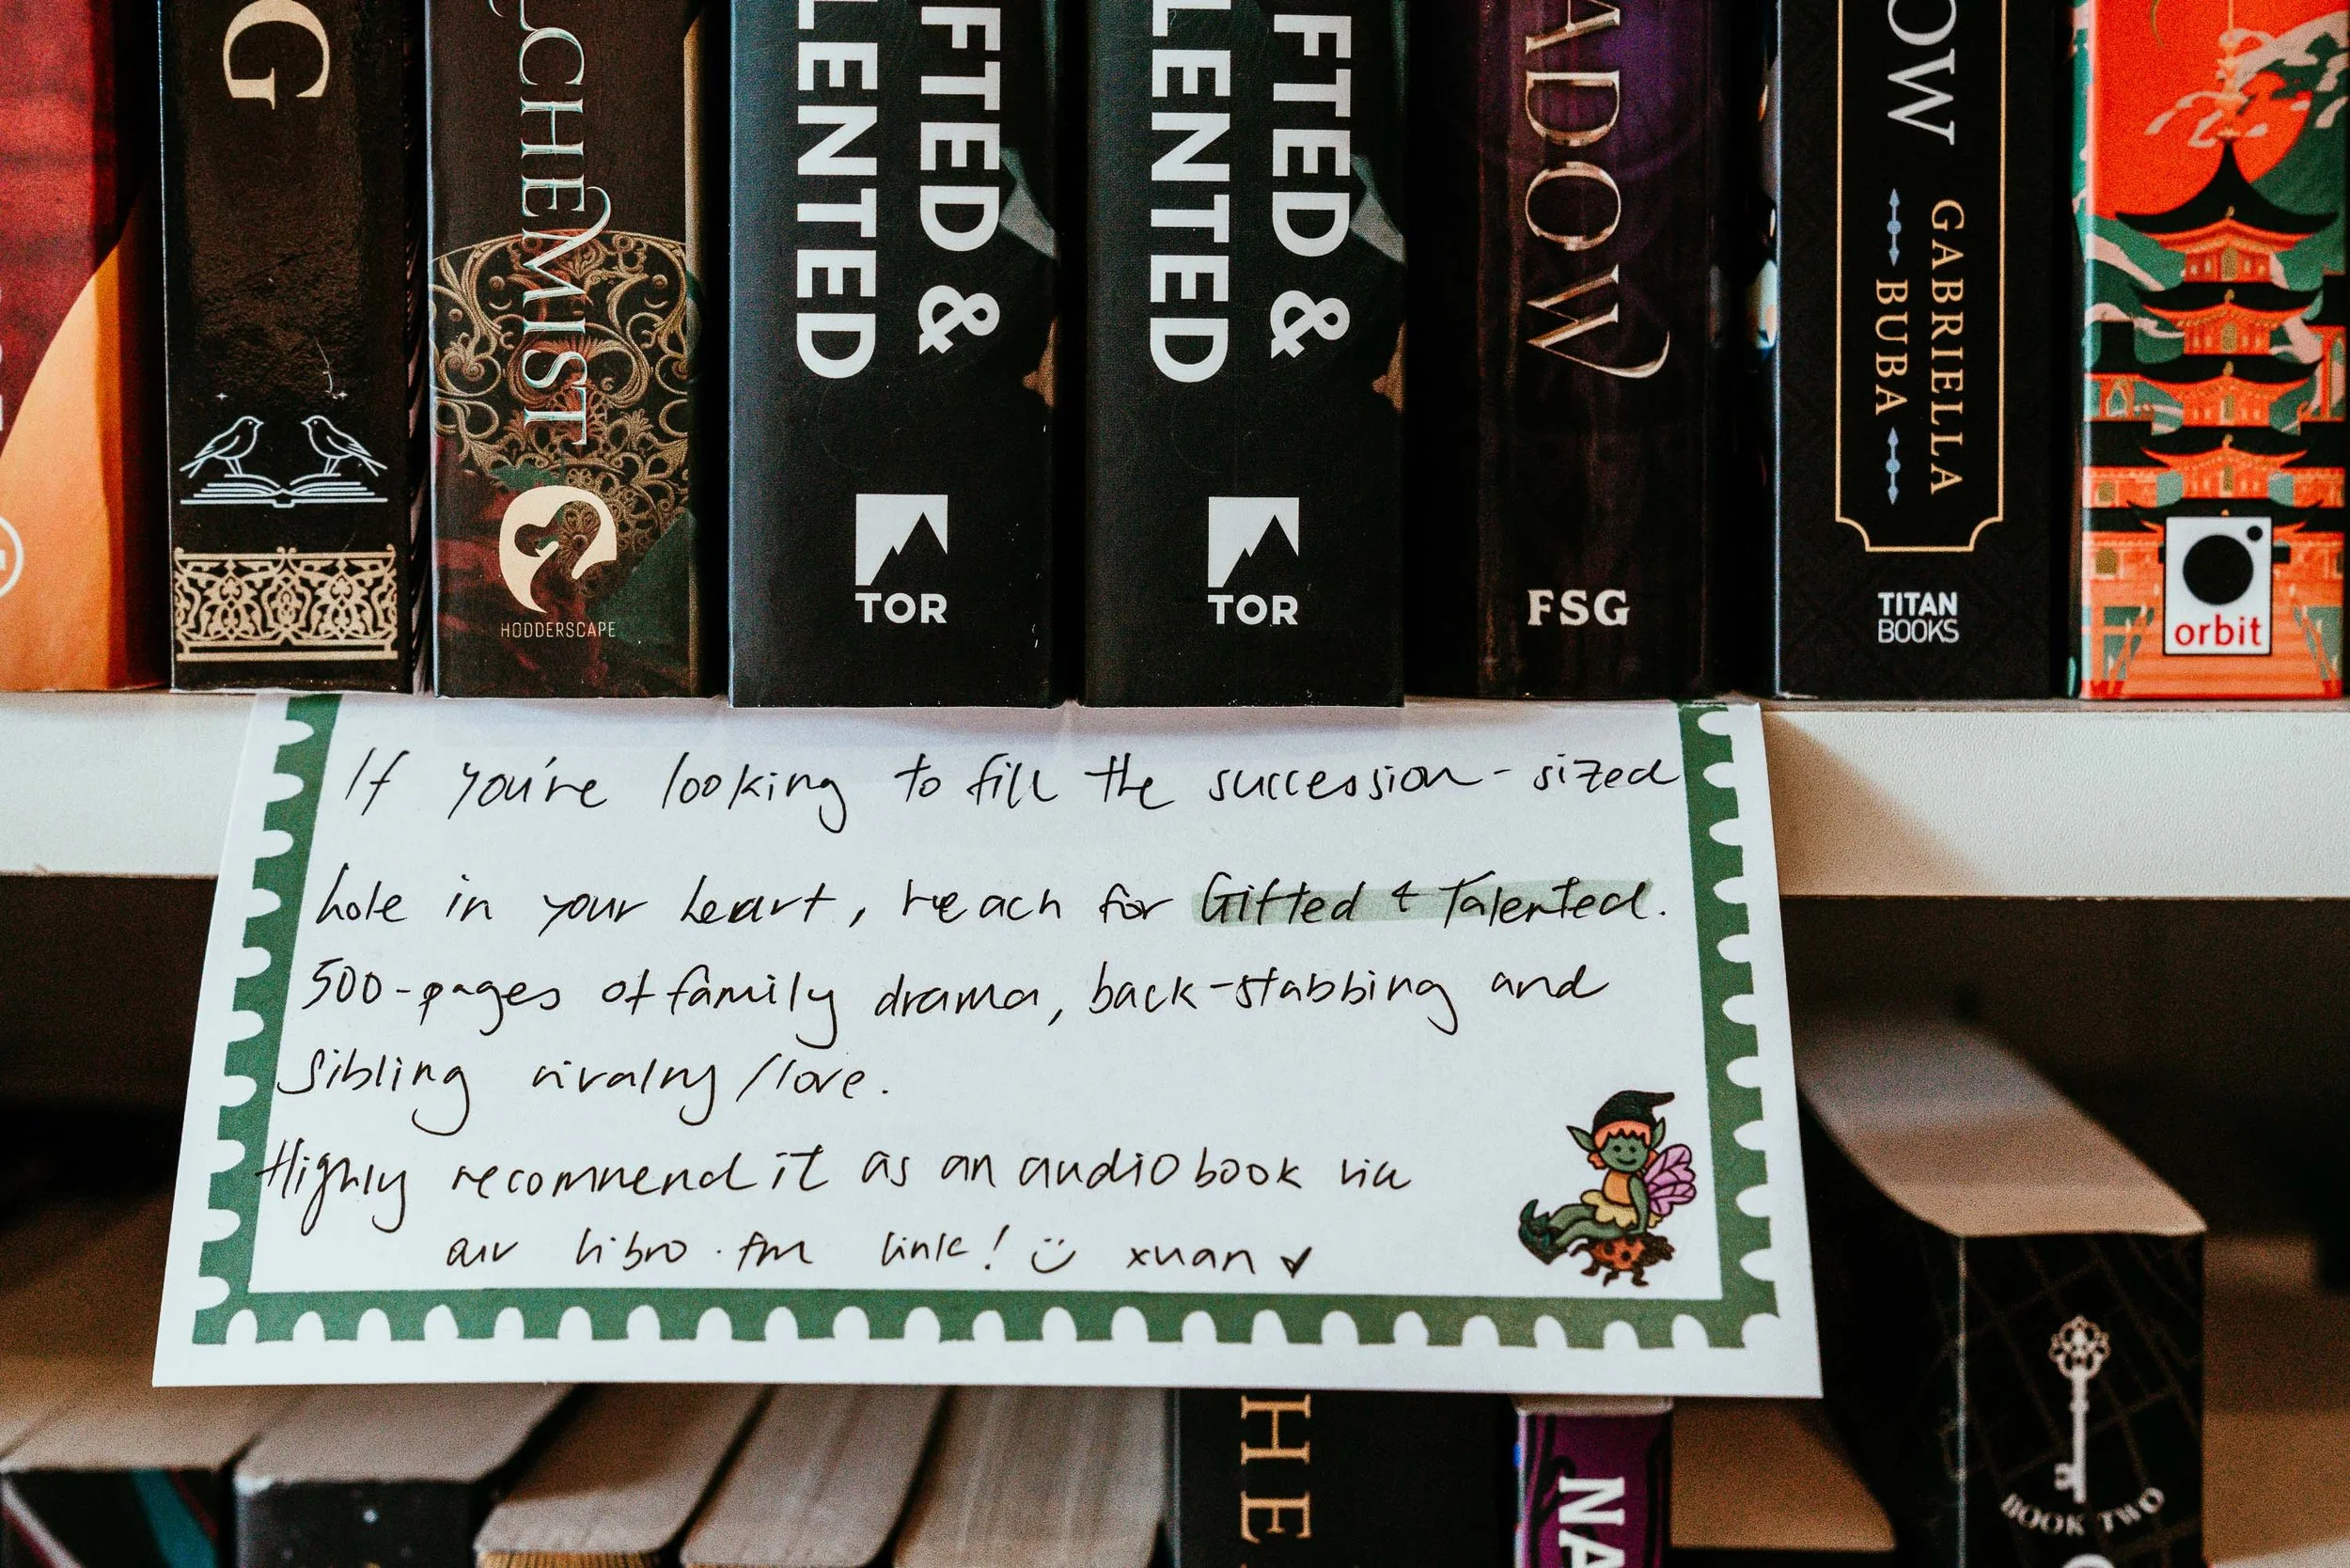 G
LCHEMIST
HODDERSCAPE
FTED &
LENTED
TOR
FTED &
LENTED
TOR
ADOW
FSG
OW
GABRIELLA
BUBA
TITAN
BOOKS
orbit
If you're looking to fill the succession-sized
hole in your heart, reach for Gifted & Talented.
500-pages of family drama, back-stabbing and
sibling rivalry/love.
Highly recommend it as an audiobook via
our libro.fm link! :) xuan ♥
HE
NA
BOOK TWO